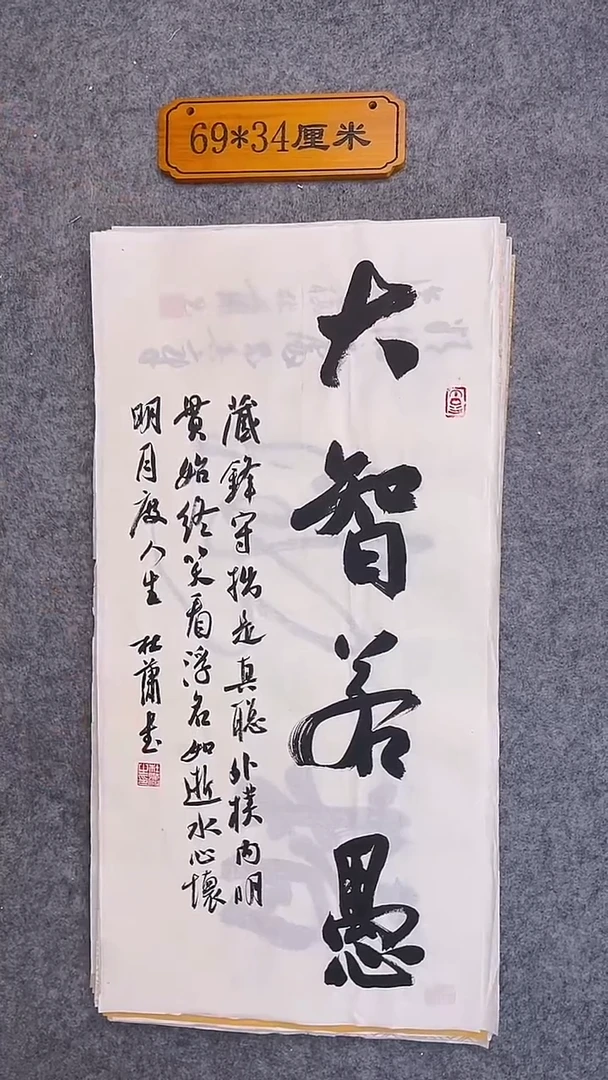 69*34厘米
大智若愚
藏鋒守拙是真聪外樸内明
贯始终笑看浮名如逝水心懷
明月度人生 杜蕭书